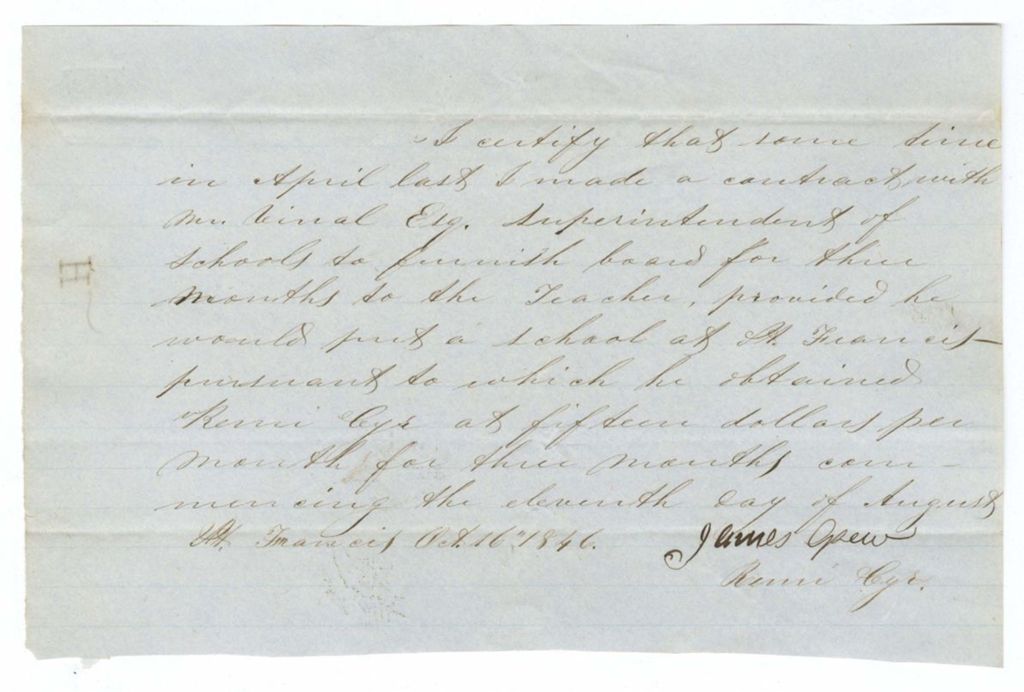 I certify that some time
in April last I made a contract with
Mr. Vinal Esq. Superintendent of
Schools to furnish board for three
Months to the Teacher, provided he
would put a school at St. Francis—
pursuant to which he obtained
Remi Cyr at fifteen dollars per
Month for three months com-
mencing the eleventh day of August
St. Francis Oct. 16" 1846.
James
Remi Cyr.
H